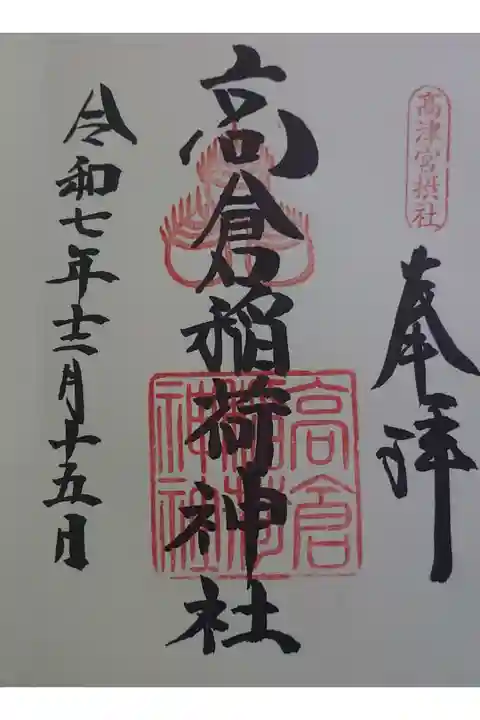 高津宮摂社
奉拝
高倉稲荷神社
高倉
稲荷
神社
令和七年十二月十五日